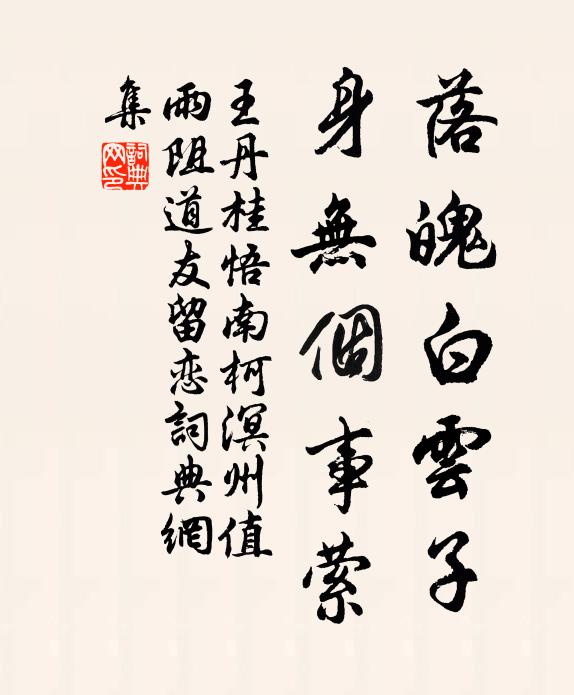 落魄白雲子
身無個事縈
王丹桂悟南柯溟州值
雨阻道友留恋詞典網
集
詞典網印